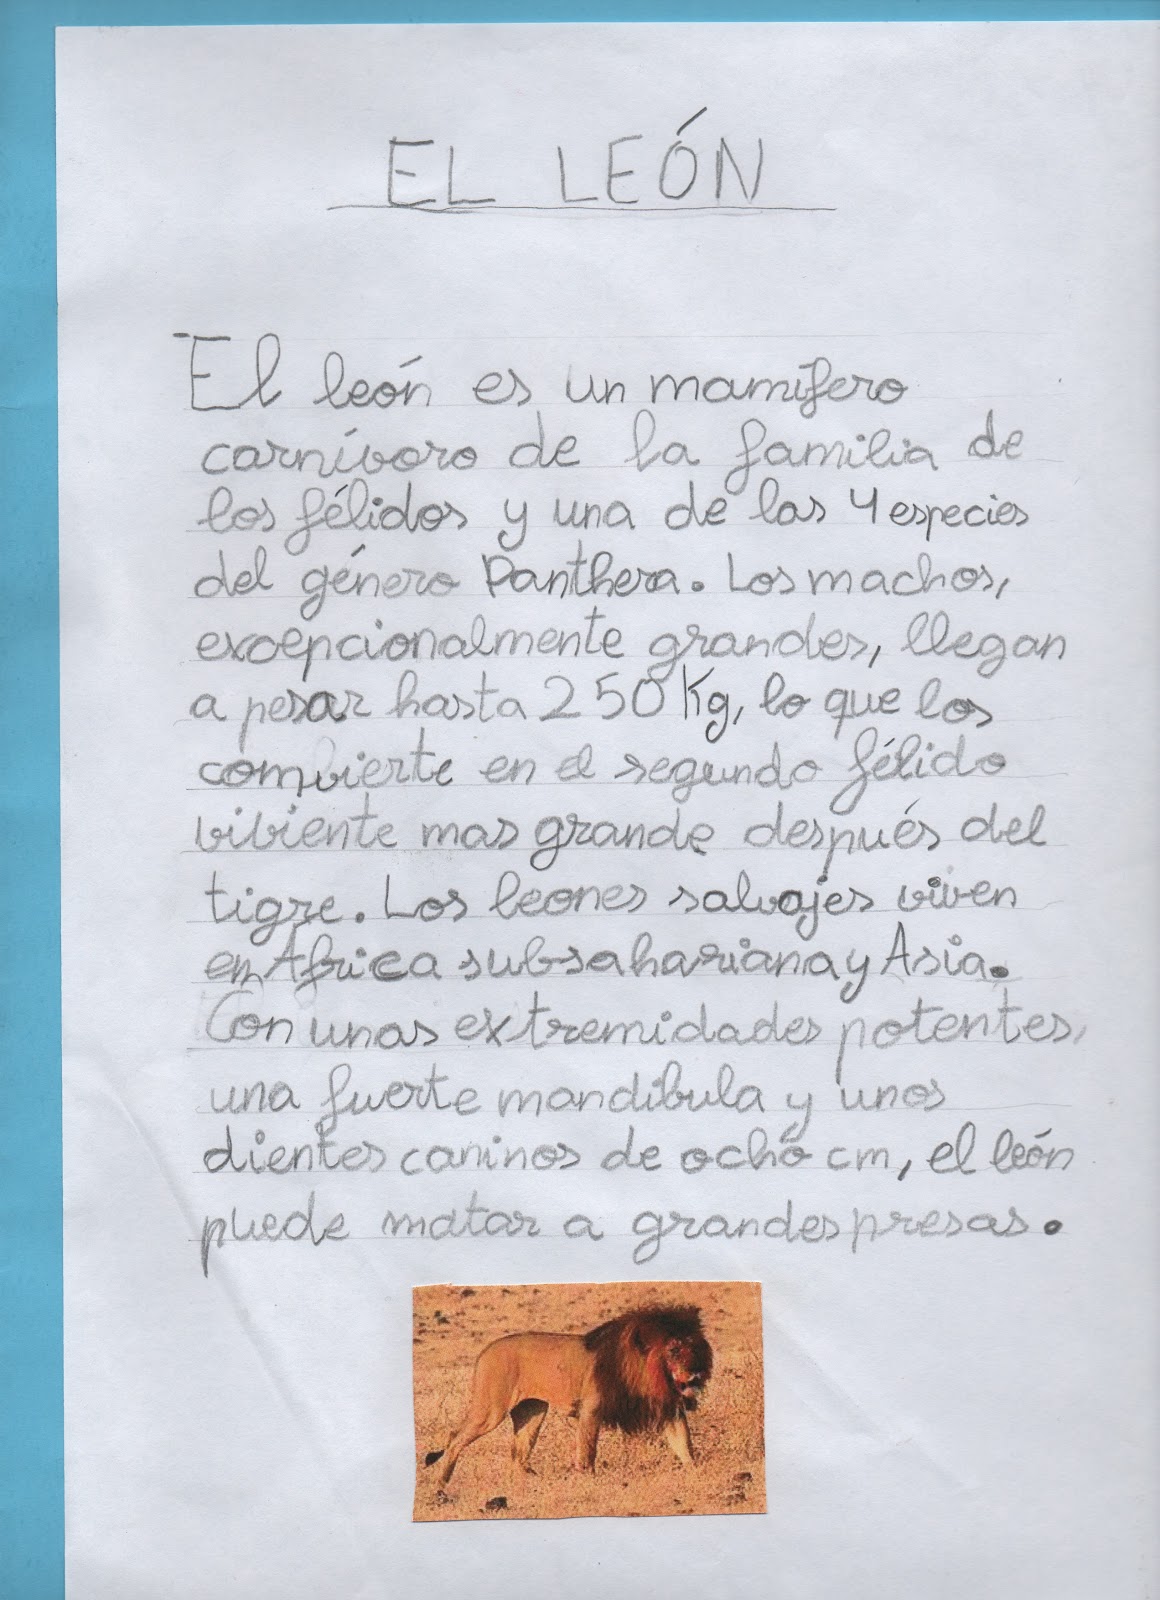 EL LEÓN
El león es un mamífero
carnívoro de la familia de
los félidos y una de las 4 especies
del género Panthera. Los machos,
excepcionalmente grandes, llegan
a pesar hasta 250 Kg, lo que los
comvierte en el segundo félido
viviente mas grande después del
tigre. Los leones salvajes viven
en África subsahariana y Asia.
Con unas extremidades potentes,
una fuerte mandibula y unos
dientes caninos de ochó cm, el león
puede matar a grandes presas.